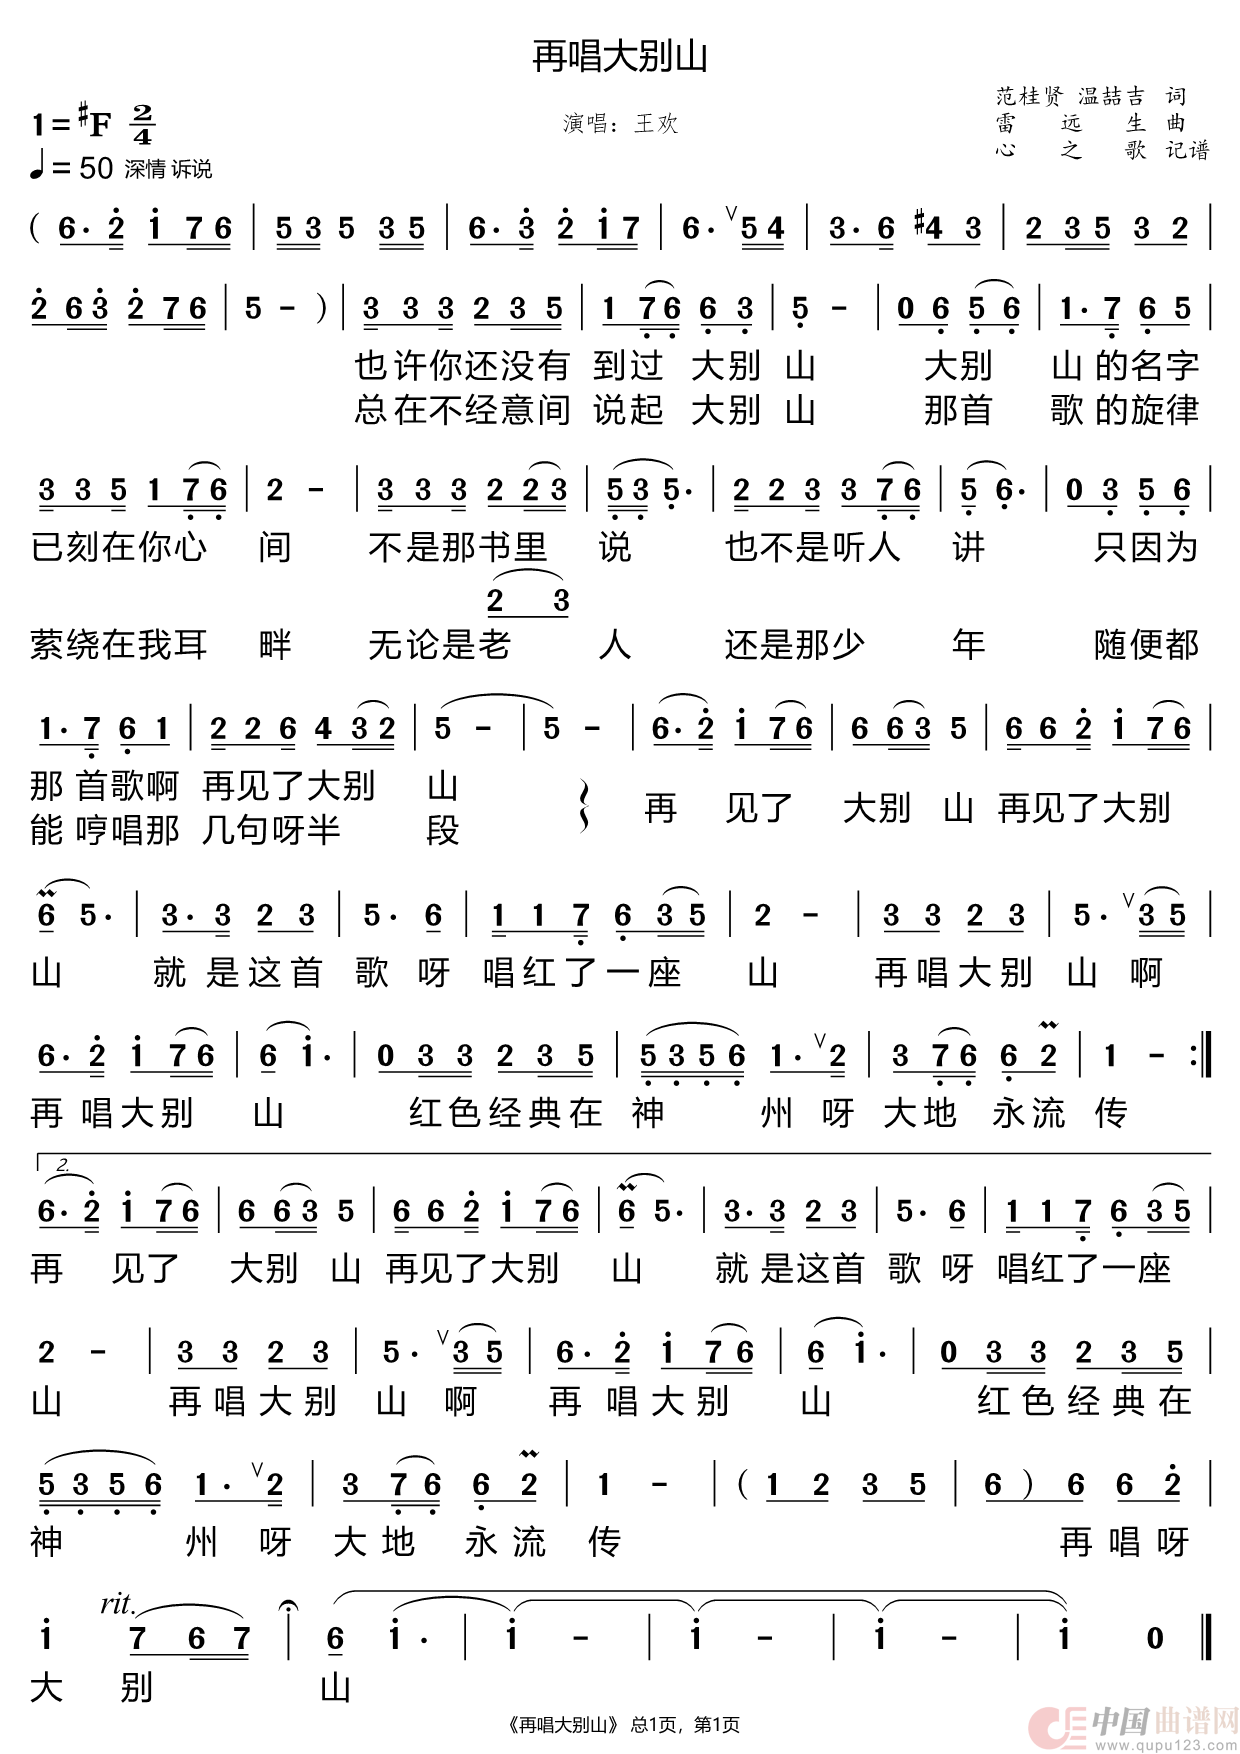 再唱大别山
1=#F 2/4
演唱：王欢
范桂贤 温喆吉 词
雷远生 曲
心之歌 记谱
♩=50 深情 诉说
( 6· 2̇ 1̇ 7 6 | 5 3 5 3 5 | 6· 3̇ 2̇ 1̇ 7 | 6· ∨ 5 4 | 3· 6 #4 3 | 2 3 5 3 2 |
2̇ 6 3̇ 2̇ 7 6 | 5 - ) | 3 3 3 2 3 5 | 1 7̣ 6̣ 6̣ 3̣ | 5̣ - | 0 6̣ 5̣ 6̣ | 1· 7̣ 6̣ 5 |
也许你还没有 到过 大别 山 大别 山 的名字
总在不经意间 说起 大别 山 那首 歌 的旋律
3 3 5 1 7̣ 6̣ | 2 - | 3 3 3 2 2 3 | 5̣ 3̣ 5̣· | 2 2 3 3 7̣ 6̣ | 5̣ 6̣· | 0 3̣ 5̣ 6̣ |
已刻在你心 间 不是那书里 说 也不是听人 讲 只因为
2 3
萦绕在我耳 畔 无论是老 人 还是那少 年 随便都
1· 7̣ 6̣ 1 | 2 2 6 4 3 2 | 5 - | 5 - | 6· 2̇ 1̇ 7 6 | 6 6 3 5 | 6 6 2̇ 1̇ 7 6 |
那 首歌啊 再见了大别 山
再 见了 大别 山 再见了大别
能 哼唱那 几句呀半 段
6 5· | 3· 3 2 3 | 5· 6 | 1 1 7̣ 6̣ 3 5 | 2 - | 3 3 2 3 | 5· ∨ 3 5 |
山 就 是这首 歌 呀 唱红了一座 山 再唱大别 山 啊
6· 2̇ 1̇ 7 6 | 6 1̇· | 0 3 3 2 3 5 | 5̣ 3̣ 5̣ 6̣ 1· ∨ 2 | 3 7̣ 6̣ 6̣ 2 | 1 - :|
再 唱大别 山 红色经典在 神 州 呀 大地 永流 传
2.
6· 2̇ 1̇ 7 6 | 6 6 3 5 | 6 6 2̇ 1̇ 7 6 | 6 5· | 3· 3 2 3 | 5· 6 | 1 1 7̣ 6̣ 3 5 |
再 见了 大别 山 再见了大别 山 就 是这首 歌 呀 唱红了一座
2 - | 3 3 2 3 | 5· ∨ 3 5 | 6· 2̇ 1̇ 7 6 | 6 1̇· | 0 3 3 2 3 5 |
山 再唱大别 山 啊 再 唱大别 山 红色经典在
5̣ 3̣ 5̣ 6̣ 1· ∨ 2 | 3 7̣ 6̣ 6̣ 2 | 1 - | ( 1 2 3 5 | 6 ) 6 6 2̇ |
神 州 呀 大地 永流 传 再唱呀
rit.
1̇ 7 6 7 | 6 1̇· | 1̇ - | 1̇ - | 1̇ - | 1̇ 0 ‖
大 别 山
《再唱大别山》 总1页，第1页
中国曲谱网
www.qupu123.com